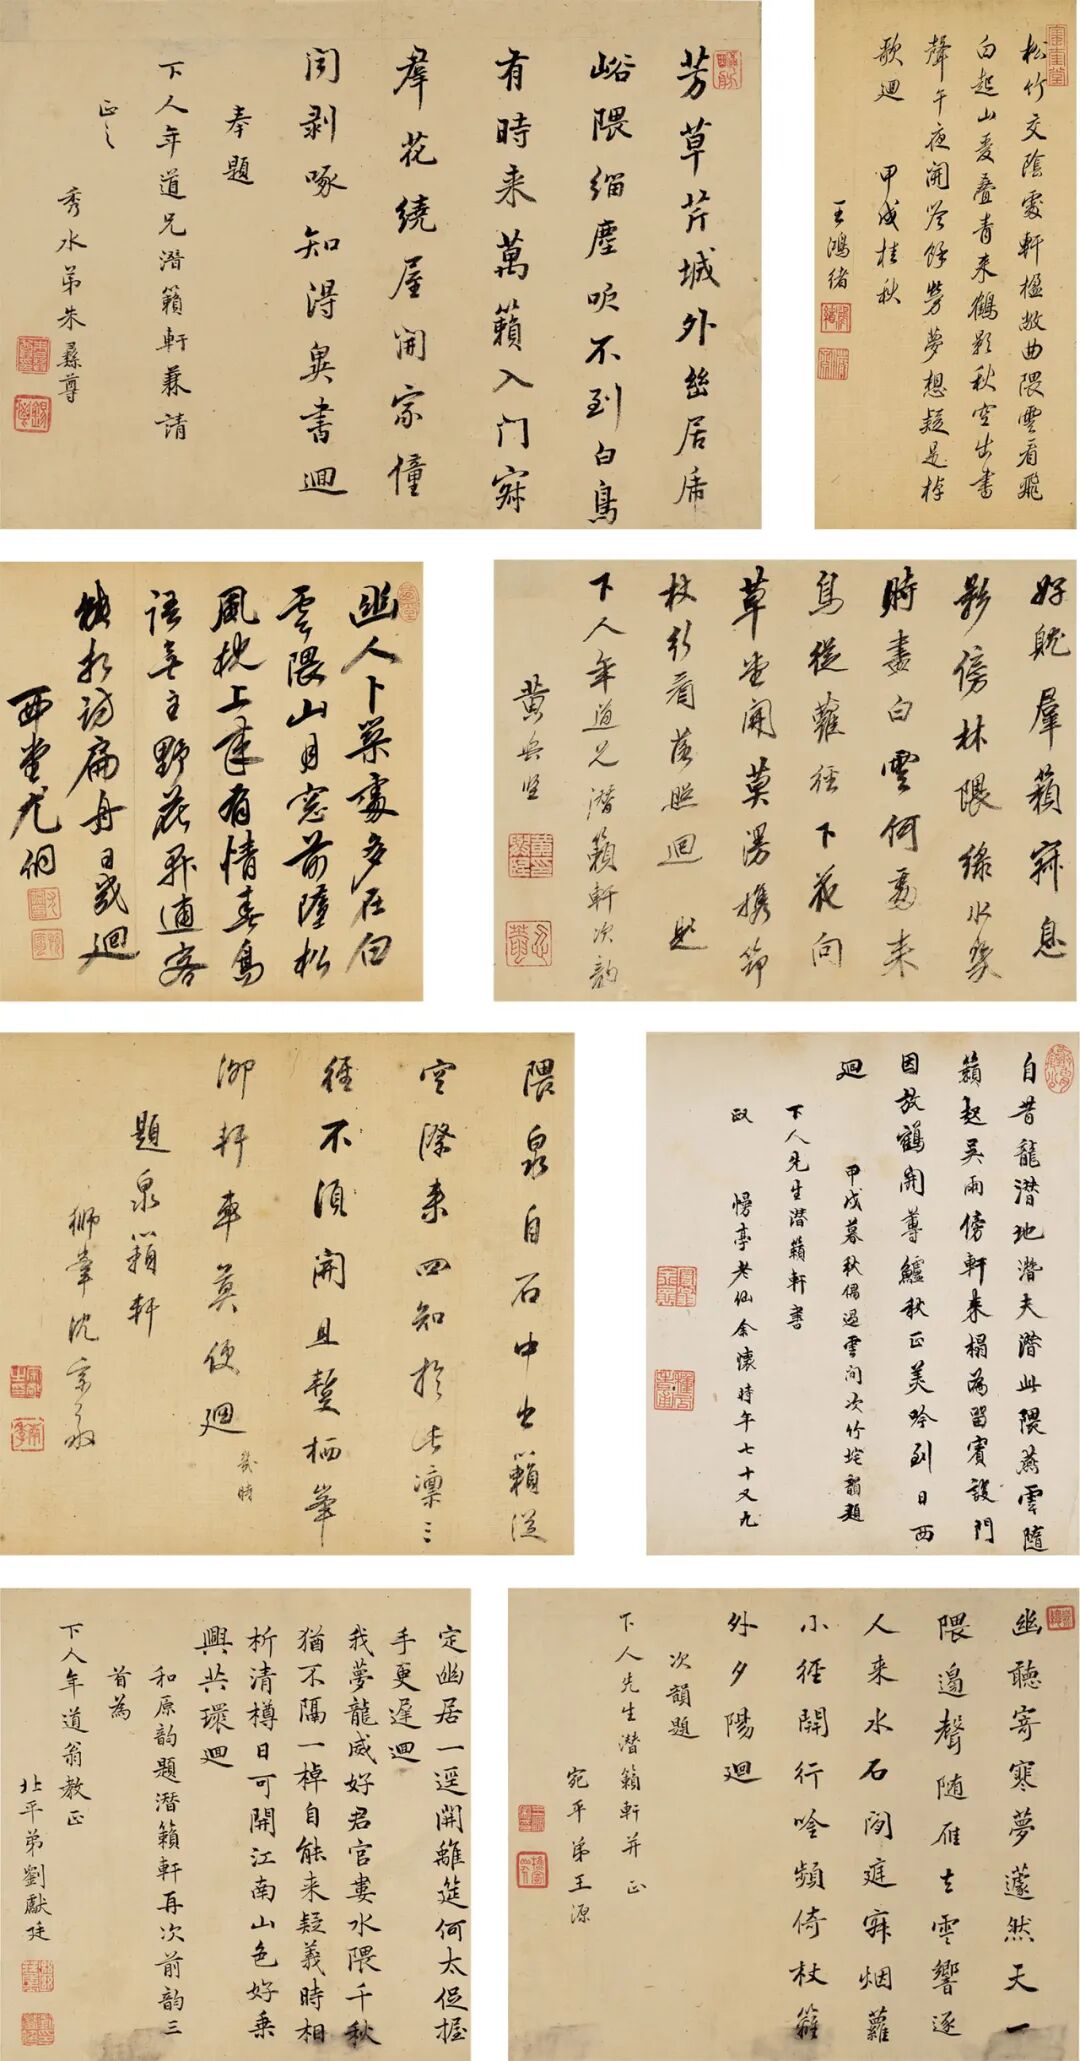 芳草芹城外幽居席
峪隈緇塵吹不到白鳥
有時来萬籟入门寂
羣花繞屋開家僮
间剥啄知得異書迴
奉題
下人年道兄潛籟軒兼請
正之
秀水弟朱彝尊
松竹交陰處軒楹敞曲隈雲看飛
白起山愛疊青来鶴影秋空出書
聲午夜開答餘勞夢想疑是棹
歌迴 甲戌桂秋
王鴻緒
幽人卜築處多在白
雲隈山月窓前墮松
風枕上来有情春鳥
語無主野花開逋客
訪扁舟日幾迴
西堂尤侗
好就羣籟寂息
影傍林隈緑水幾
時畫白雲何處来
鳥從蘿徑下花向
草堂開莫漫携節
杖行看落照迴 題
下人年道兄潜籟軒次韵
黄與堅
隈泉自石中出籟從
空際来四知於此凛三
徑不須開且暫栖峯
泖軒車莫便迴
幾時
題泉籟軒
獅峯沈宗敬
自昔龍潜地潜夫潜此隈燕雲隨
籟起吳雨傍軒来榻為留賓設門
因放鶴開尊鱸秋正美吟到日西
迴 甲戌暮秋偶過雲间次竹垞韻題
下人先生潜籟軒書
政 慢亭老仙余懷時年七十又九
定幽居一逕開離筵何太促握
手更遲迴
我夢龍威好君官婁水隈千秋
猶不隔一棹自能来疑義時相
析清樽日可開江南山色好乗
興共環迴
和原韵題潜籟軒再次前韵三
首為
下人年道翁教正
北平弟劉獻廷
幽聽寄寒夢蘧然天一
隈邊聲随雁去雲響逐
人来水石閟庭寂烟蘿
小徑開行吟頻倚杖籬
外夕陽迴
次韻題
下人先生潜籟軒并正
宛平弟王源